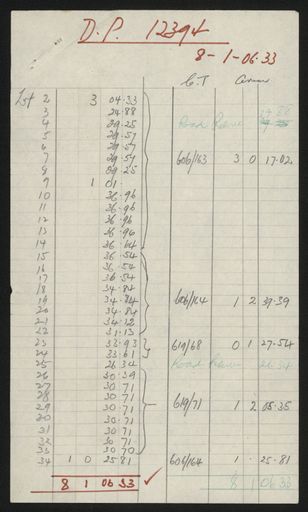 D.P. 12394
8 - 1 - 06.33
C.T
Lot 2 3 04.33
3 24.88
4 29.25 Road Reserve
5 29.57
6 29.57
7 29.57 606/163 3 0 17.02
8 29.25
9 1 01.
10 36.96
11 36.96
12 36.96
13 36.96
14 36.64
15 36.54
16 36.54
17 36.54
18 34.84
19 34.84 606/164 1 2 39.39
20 34.84
21 34.12
22 31.13
23 33.93 619/68 0 1 27.54
24 33.61
25 26.34 Road Reserve 26.34
26 30.39
27 30.71
28 30.71
29 30.71 619/71 1 2 05.35
30 30.71
31 30.71
32 30.71
33 30.70
34 1 0 25.81 606/164 1 . 25.81
8 1 06 33 8 1 06 33